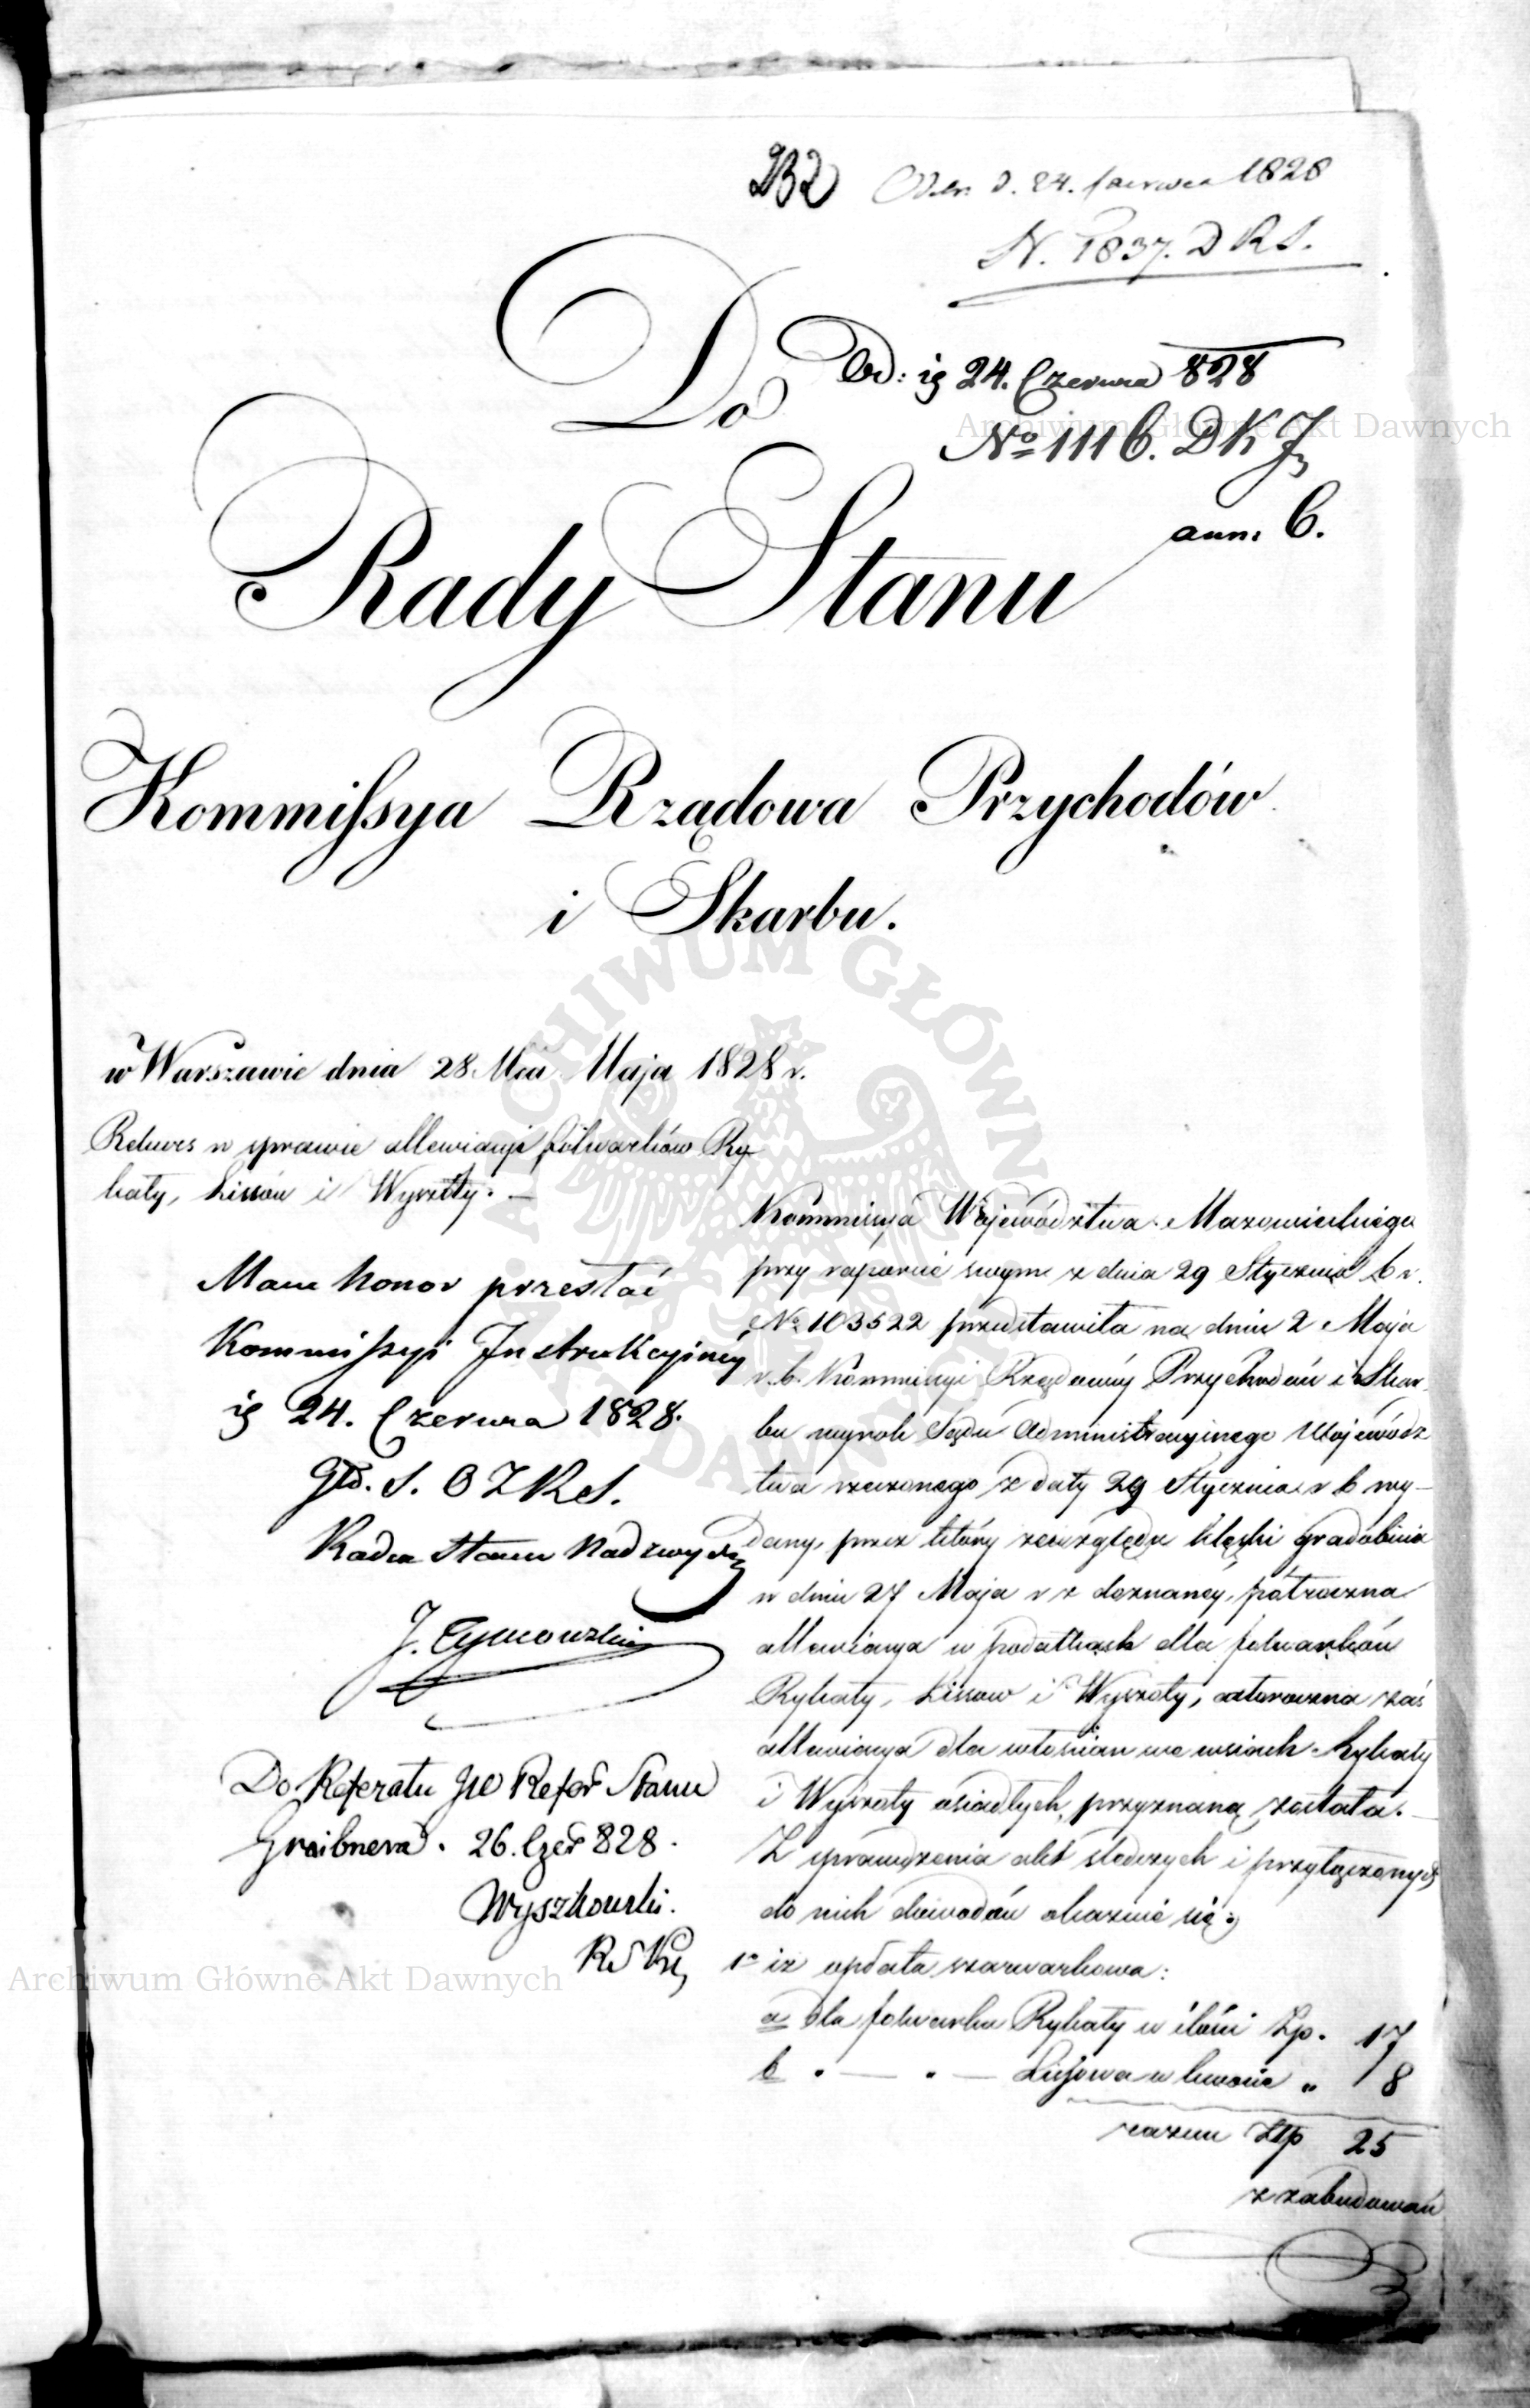 232
Oden d. 24. Czerwca 1828
N. 1837. D R S.
Do
Od: is 24. Czerwca 828
No 1116. D K J
ann. 6.
Rady Stanu
Kommissya Rządowa Przychodów
i Skarbu.
w Warszawie dnia 28. Mca Maja 1828 r.
Rekurs w sprawie allewiacyi folwarków Ry-
kały, Lissów i Wyrzoty. —
Mam honor przesłać
Kommissyi Instrukcyinéy
is 24. Czerwca 1828.
Radca Stanu Nadzwycz
J. Tymowski
Do Referatu JW Refer Stanu
Graibnera. 26. Czer 828.
Wyszkowski.
Kommissya Województwa Mazowieckiego
przy raporcie swym z dnia 29 Stycznia b r.
No 103522 przedstawiła na dniu 2 Maja
r. b. Kommissyi Rządowéy Przychodów i Skar-
bu wyrok Sądu Administracyinego Wojewódz-
twa rzeczonego z daty 29 Stycznia r b wy-
dany, przez który ze względu klęski gradobicia
w dniu 27 Maja r z doznanéy, półroczna
allewiacya w podatkach dla folwarków
Rykały, Lissow i Wyrzoty, całoroczna zaś
allewiacya dla włościan we wsiach Rykały
i Wyrzoty osiadłych, przyznaną została. —
Z sprawdzenia akt śledczych i przyłączonych
do nich dowodów okazuie się:
1o iż opłata szarwarkowa:
a dla folwarku Rykały w ilości Zp. 17
b " — " — Lissowa w kwocie " 8
razem Złp 25
z zabudowań
Archiwum Główne Akt Dawnych
Archiwum Główne Akt Dawnych
ARCHIWUM GŁÓWNE AKT DAWNYCH